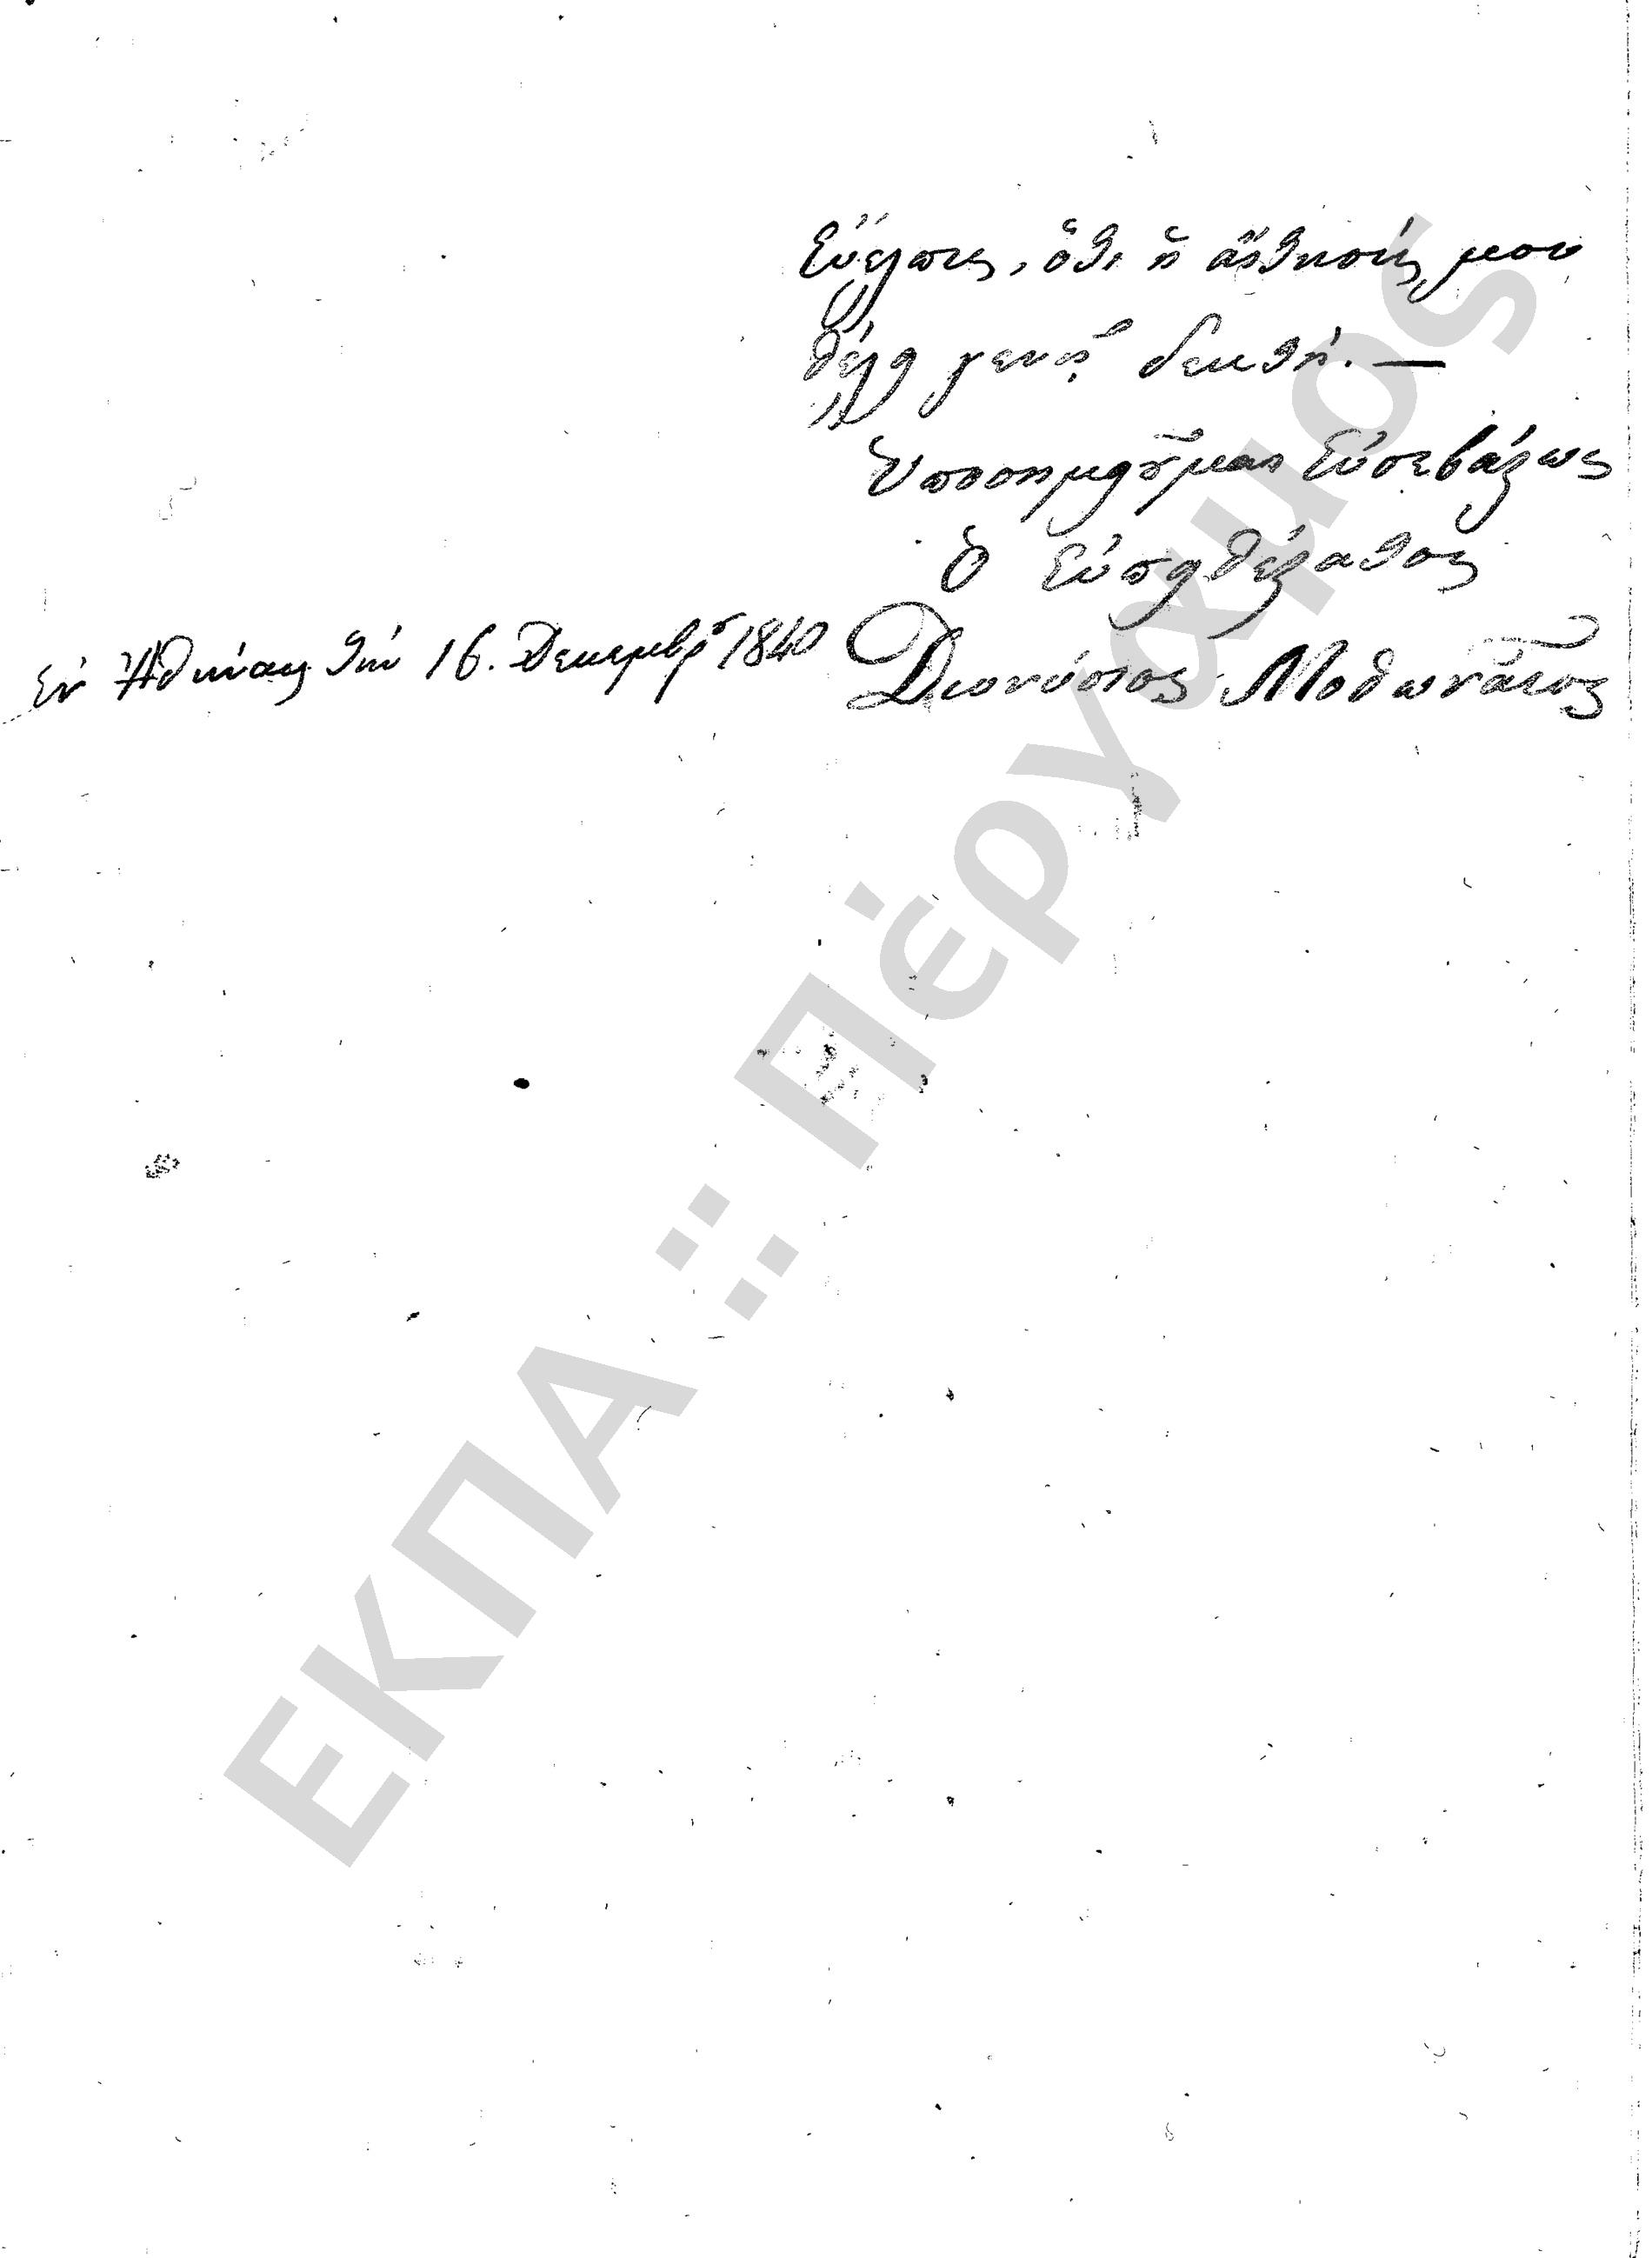 Εὔελπις, ὅτι ἡ αἴτησίς μου
θέλει γενῇ δεκτή. —
Ὑποσημειοῦμαι Εὐσεβάστως
Ὁ Εὐπειθέστατος
Ἐν Ἀθήναις τὴν 16. Δεκεμβρ 1840 Διονύσιος Μοθωναῖος
ΕΚΠΑ :: Πέργαμος